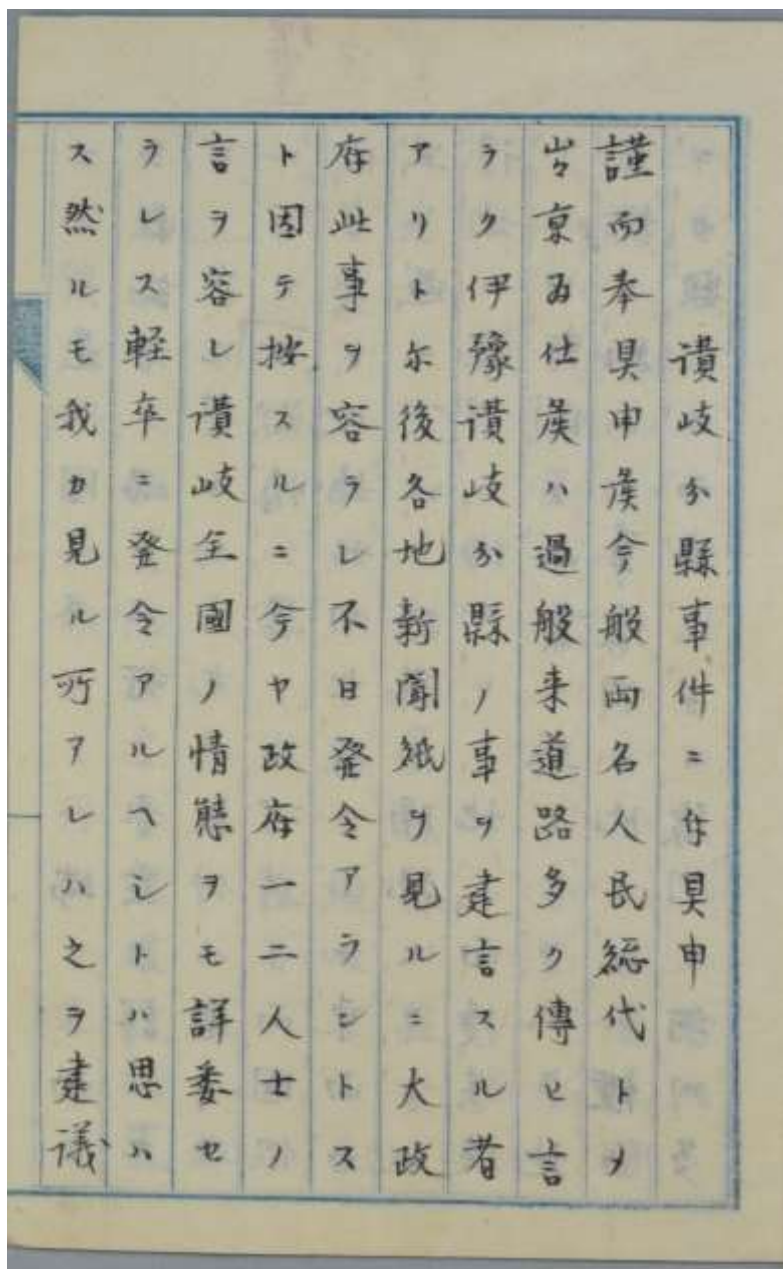 讃岐分縣事件ニ付具申
謹而奉具申候今般両名人民総代トメ
出京仕候ハ過般来道路多ク傳ヒ言
ラク伊豫讃岐分縣ノ事ヲ建言スル者
アリト尓後各地新聞紙ヲ見ルニ大政
府此事ヲ容ラレ不日発令アラントス
ト因テ按スルニ今ヤ政府一二人士ノ
言ヲ容レ讃岐全國ノ情態ヲモ詳委セ
ラレス軽卒ニ発令アルヘシトハ思ハ
ス然ルモ我カ見ル所アレハ之ヲ建議